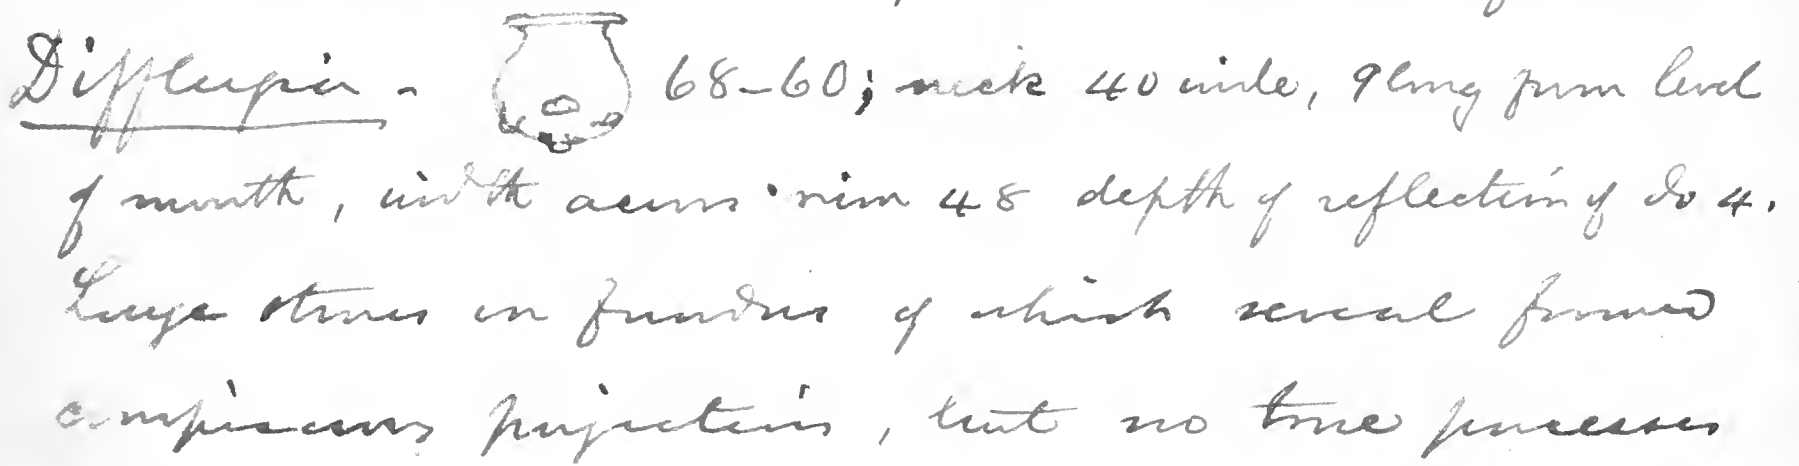 Difflugia - 68-60; neck 40 wide, 9 long from level
of mouth, width across rim 48 depth of reflection of do 4.
Large stones on fundus of which several formed
conspicuous projections, but no true processes